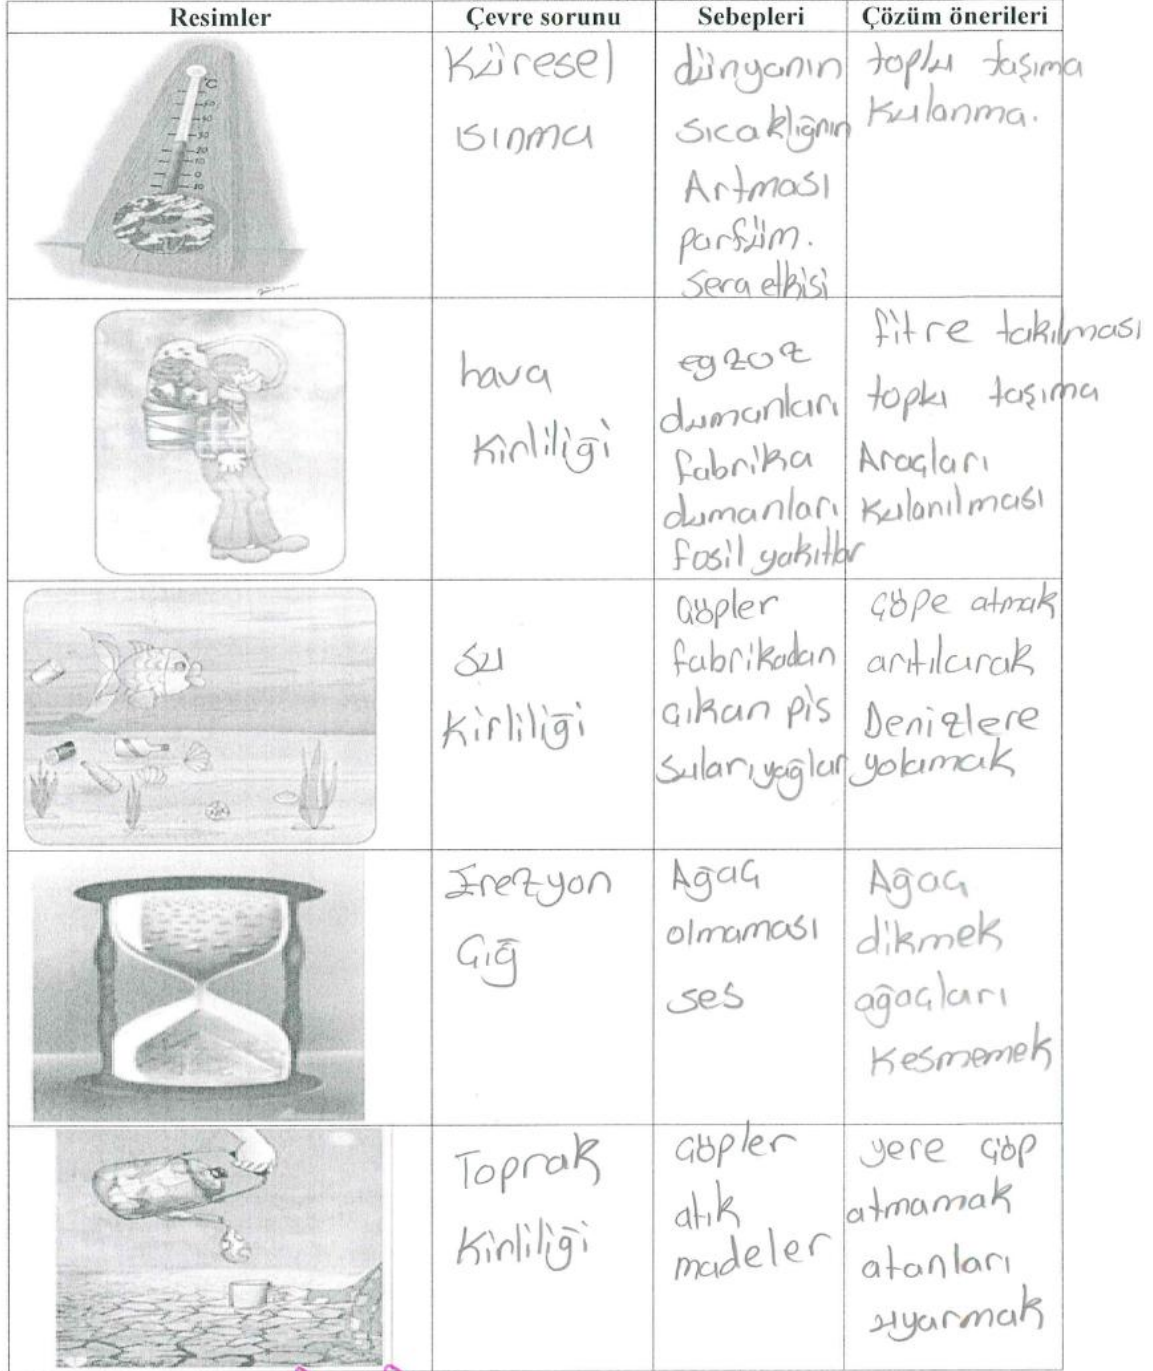 Resimler Çevre sorunu Sebepleri Çözüm önerileri
°C
50
40
30
20
10
0
10
Küresel
ısınma
dünyanın
sıcaklığnın
Artması
parfüm.
sera etkisi
toplu taşıma
Kulanma.
hava
Kirliliği
egzoz
dumanları
fabrika
dumanları
fosil yakıtlar
fitre takılması
toplu taşıma
Araçları
Kulanılması
su
Kirliliği
çöpler
fabrikadan
çıkan pis
suları, yağlar
çöpe atmak
arıtılarak
Denizlere
yolamak
Erezyon
Çığ
Ağaç
olmaması
ses
Ağaç
dikmek
ağaçları
Kesmemek
Toprak
Kirliliği
çöpler
atık
madeler
yere çöp
atmamak
atanları
uyarmak